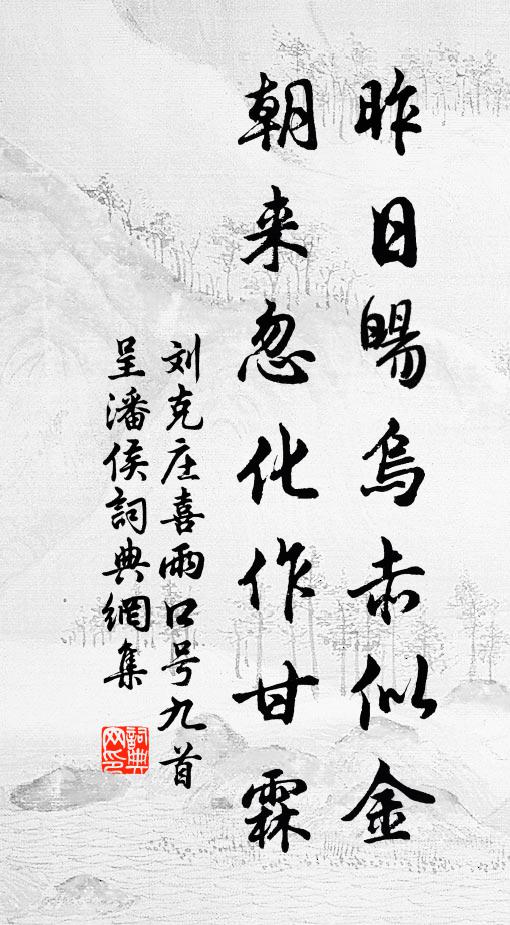 昨日暘烏赤似金
朝来忽化作甘霖
刘克庄喜雨口号九首
呈潘侯詞典網集
詞典网印